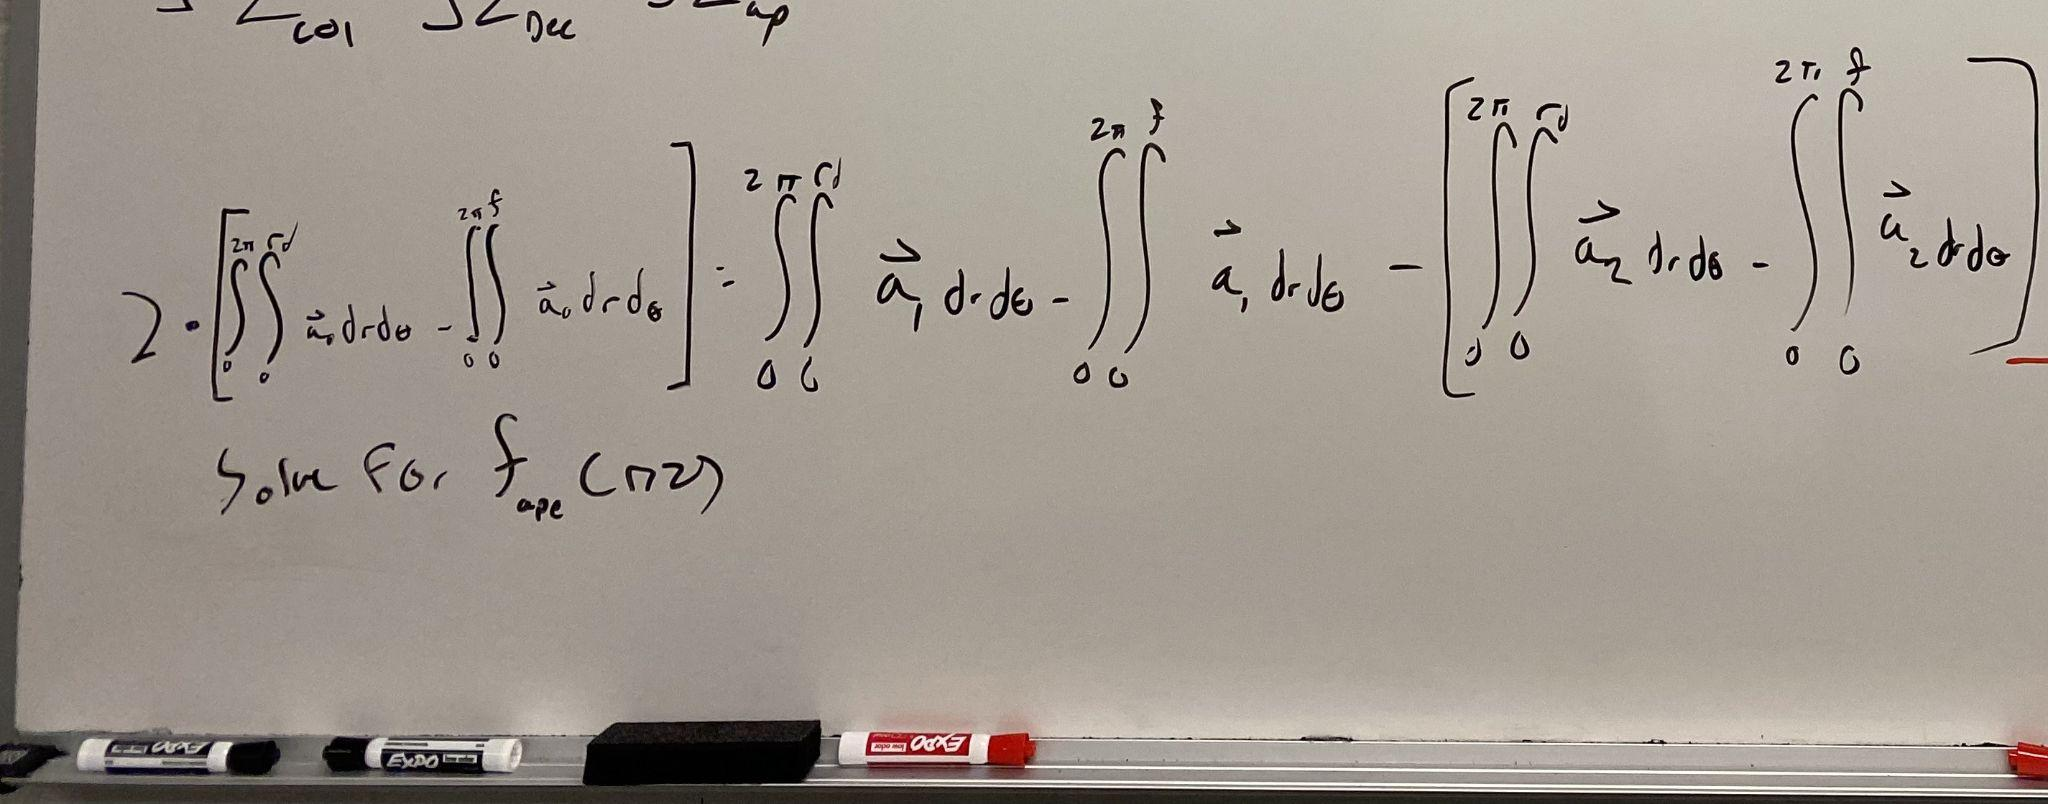 col Dec ap
2 · [ ∫₀^2π ∫₀^rd a⃗₀ dr dθ - ∫₀^2π ∫₀^f a⃗₀ dr dθ ] = ∫₀^2π ∫₀^rd a⃗₁ dr dθ - ∫₀^2π ∫₀^f a⃗₁ dr dθ - [ ∫₀^2π ∫₀^rd a⃗₂ dr dθ - ∫₀^2π ∫₀^f a⃗₂ dr dθ ]
Solve For f_ape
EXPO EXPO EXPO low odor